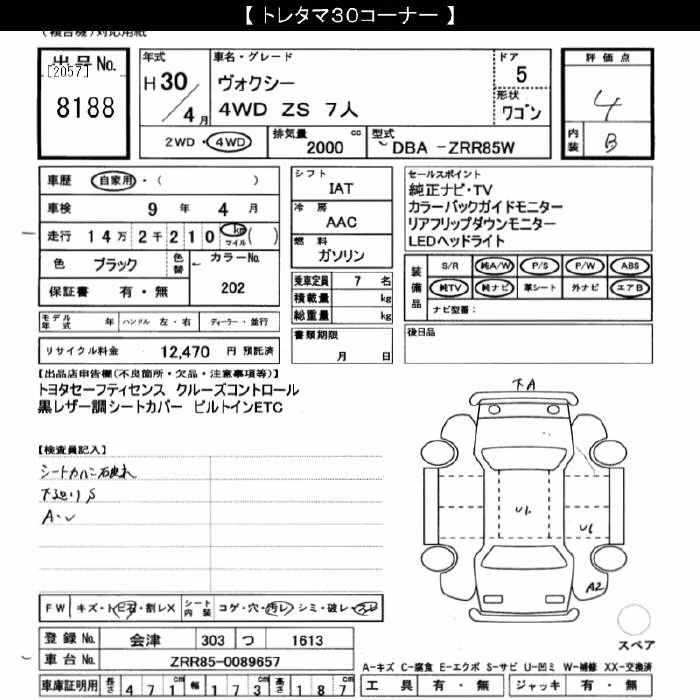 【 トレタマ30コーナー 】
(複合機)対応用紙
出品No. [2057] 8188
年式 H30/4月
車名・グレード ヴォクシー 4WD ZS 7人
ドア 5
形状 ワゴン
評価点 4
内装 B
2WD・4WD 排気量 2000 cc 型式 DBA -ZRR85W
車歴 自家用・( )
車検 9 年 4 月
走行 14万2千210 km マイル ( )
色 ブラック 色替 カラーNo. 202
保証書 有・無
モデル年式 年 ハンドル 左・右 ディーラー・並行
リサイクル料金 12,470 円 預託済
シフト IAT
冷房 AAC
燃料 ガソリン
乗車定員 7 名
積載量 kg
総重量 kg
書類期限 月 日
セールスポイント
純正ナビ・TV
カラーバックガイドモニター
リアフリップダウンモニター
LEDヘッドライト
装備品 S/R 純A/W P/S P/W ABS
純TV 純ナビ 革シート 外ナビ エアB
ナビ型番:
後日品
【出品店申告欄(不良箇所・欠品・注意事項等)】
トヨタセーフティセンス クルーズコントロール
黒レザー調シートカバー ビルトインETC
【検査員記入】
シートカバー破れ
下廻りS
A・U
下A
U1
U1
A2
スペア
FW キズ・トビ石・割レX シート内装 コゲ・穴・汚レ・シミ・破レ・スレ
登録No. 会津 303 つ 1613
車台No. ZRR85-0089657
A-キズ C-腐食 E-エクボ S-サビ U-凹ミ W-補修 XX-交換済
車庫証明用 長さ 471cm 幅 173cm 高さ 187cm 工具 有・無 ジャッキ 有・無